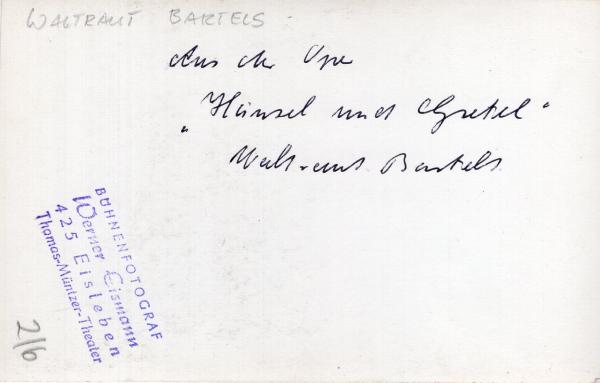 WALTRAUT BARTELS
Aus der Oper
"Hänsel und Gretel"
Waltraut Bartels
BÜHNENFOTOGRAF
Werner Eismann
425 Eisleben
Thomas-Müntzer-Theater
2/6